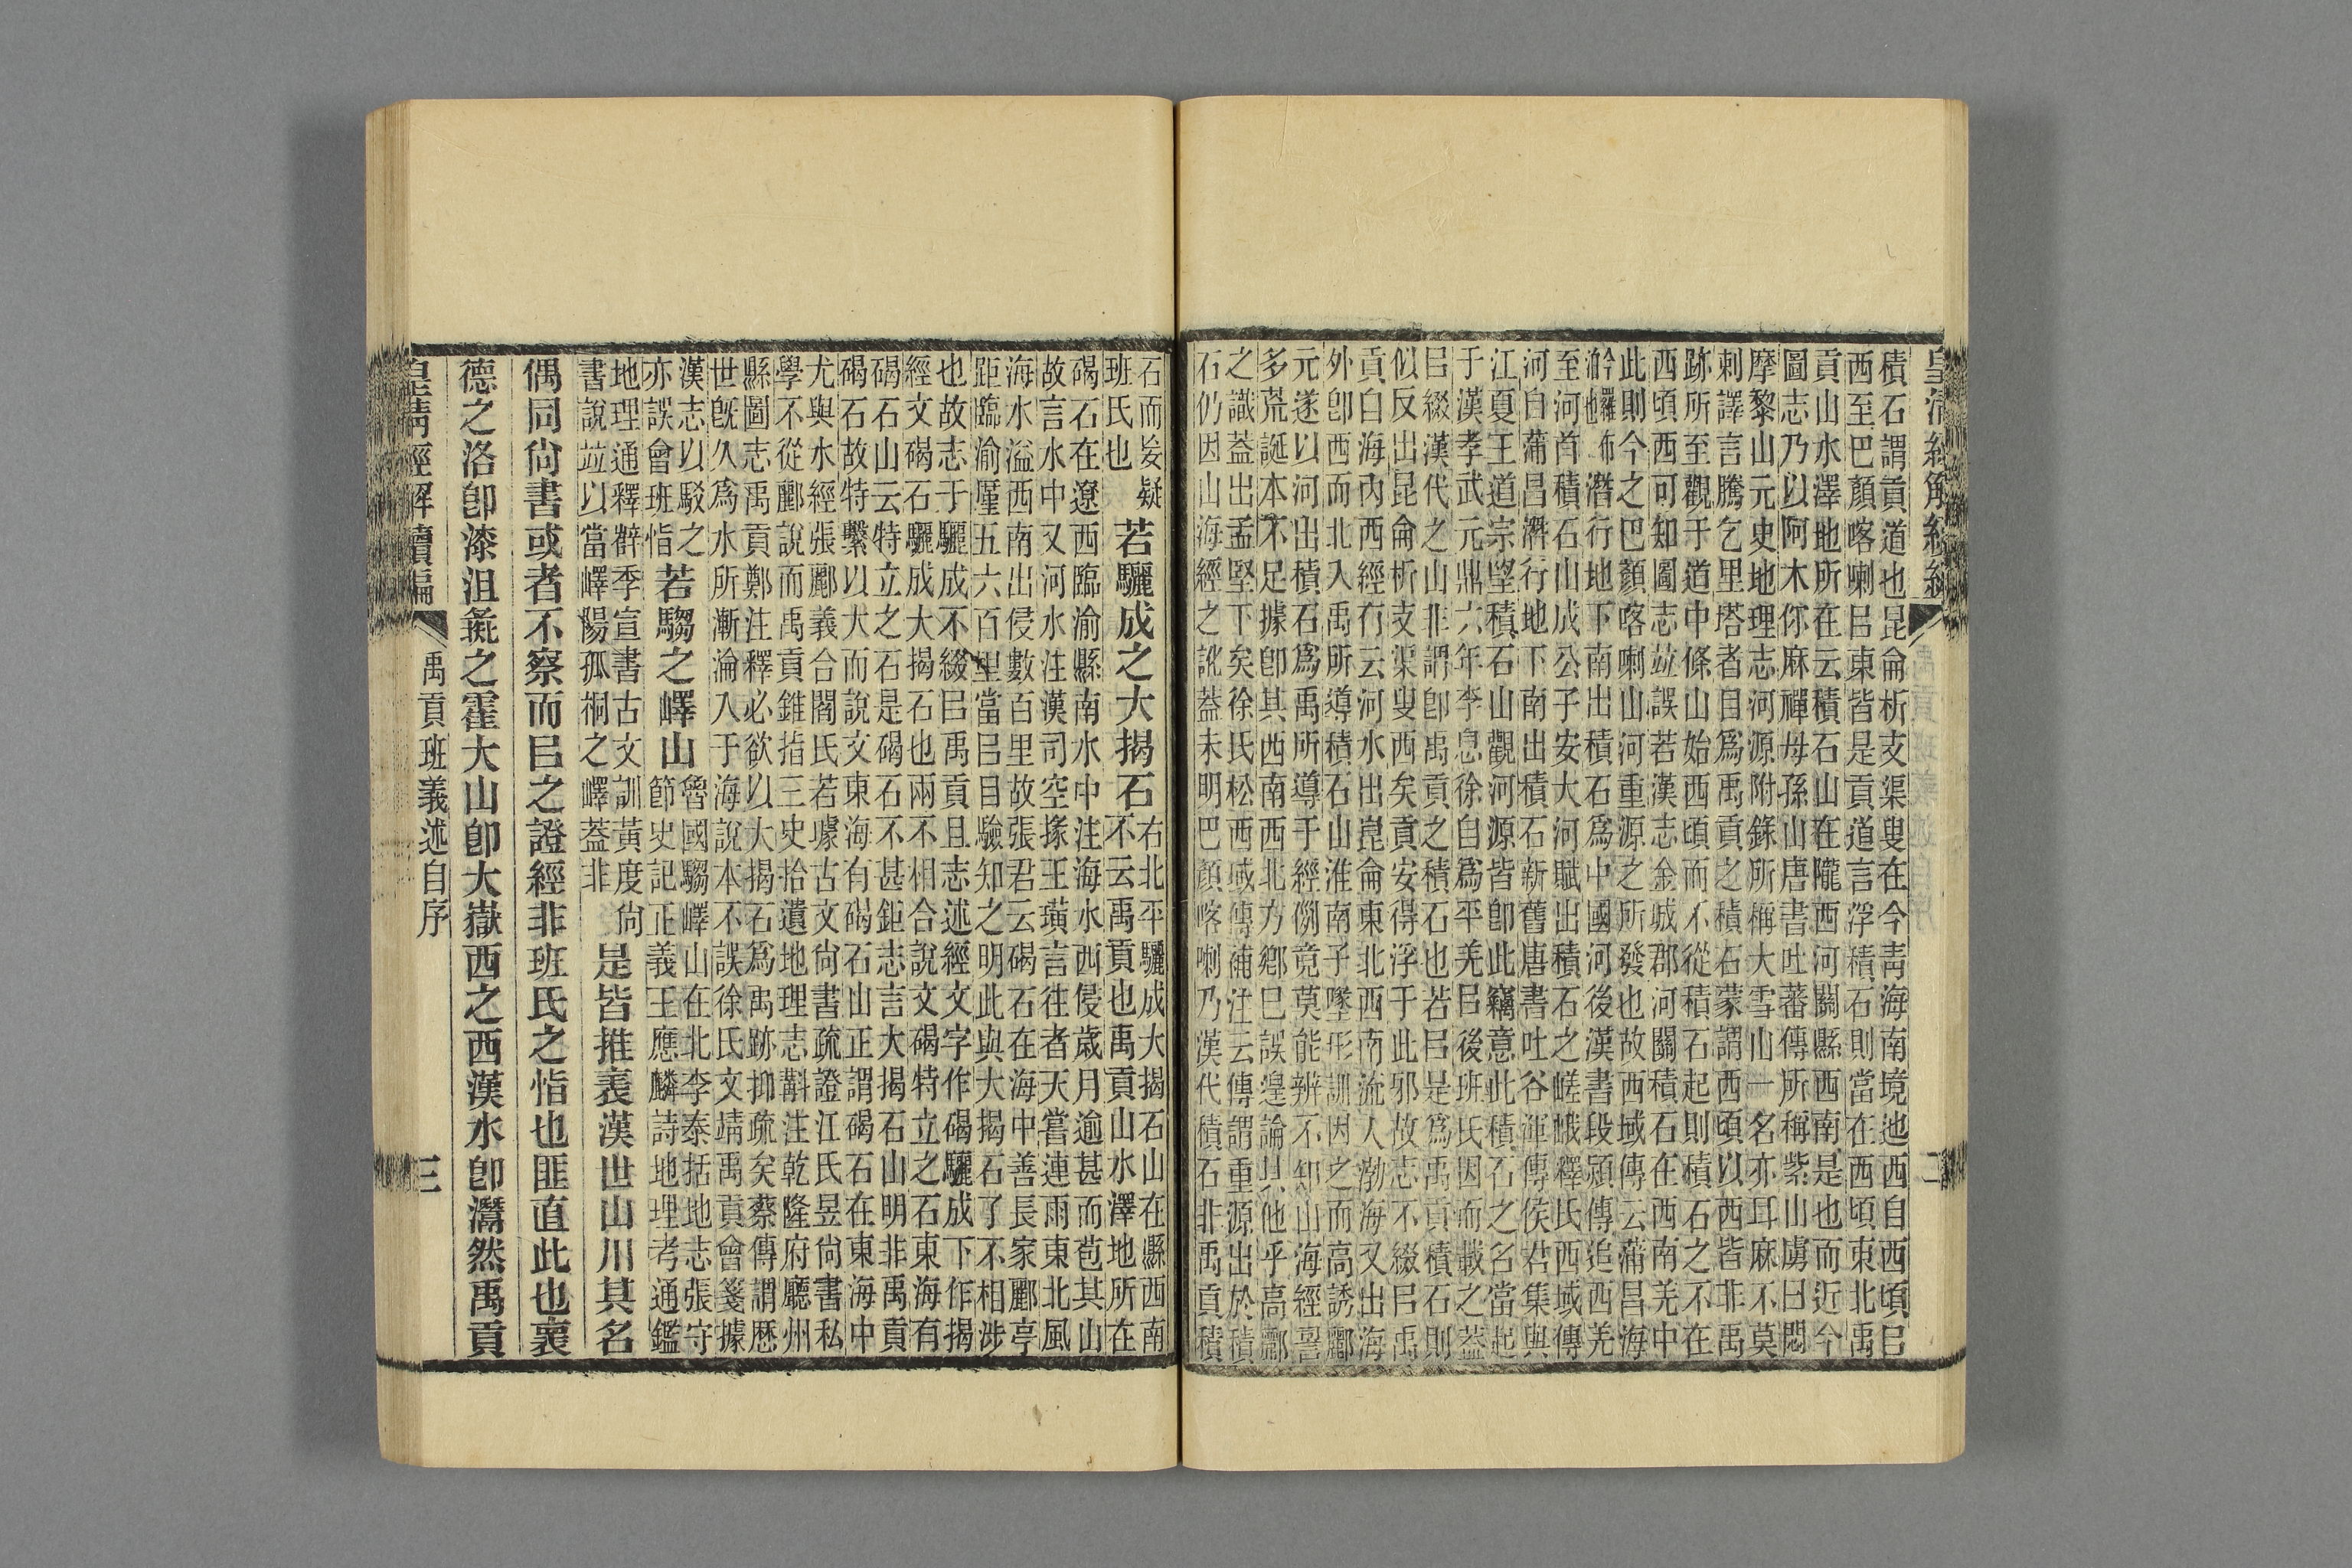 積石謂貢道也昆侖析支渠叟在今靑海南境也西自西頃㠯
西至巴顏喀喇㠯東皆是貢道言浮積石則當在西頃東北禹
貢山水澤地所在云積石山在隴西河關縣西南是也而近今
圖志乃以阿木你麻禪母孫山唐書吐蕃傳所稱紫山虜曰悶
摩黎山元史地理志河源附錄所稱大雪山一名亦耳麻不莫
剌譯言騰乞里塔者目爲禹貢之積石蒙謂西頃以西皆非禹
跡所至觀于道中條山始西頃而不從積石起則積石之不在
西頃西可知圖志竝誤若漢志金城郡河關積石在西南羌中
此則今之巴顏喀喇山河重源之所發也故西域傳云蒲昌海
潛行地下南出積石爲中國河後漢書段熲傳追西羌
至河首積石山成公子安大河賦出積石之嵯峨釋氏西域傳
河自蒲昌潛行地下南出積石新舊唐書吐谷渾傳侯君集與
江夏王道宗望積石山觀河源皆卽此竊意此積石之名當起
于漢孝武元鼎六年李息徐自爲平羌㠯後班氏因而載之葢
㠯綴漢代之山非謂卽禹貢之積石也若㠯是爲禹貢積石則
似反出昆侖析支渠叟西矣貢安得浮于此邪故志不綴㠯禹
貢白海內西經有云河水出崑侖東北西南流入渤海又出海
外卽西而北入禹所導積石山淮南子墬形訓因之而高誘酈
元遂以河出積石爲禹所導于經例竟莫能辨不知山海經詈
多荒誕本不足據卽其西南西北方鄉已誤遑論其他乎高酈
之識葢出孟堅下矣徐氏松西域傳補注云傳謂重源出於積
石仍因山海經之訛葢未明巴顏喀喇乃漢代積石非禹貢積
石而妄疑
班氏也
若驪成之大揭石
右北平驪成大揭石山在縣西南
不云禹貢也禹貢山水澤地所在
碣石在遼西臨渝縣南水中注海水西侵歲月逾甚而苞其山
故言水中又河水注漢司空掾王璜言往者天嘗連雨東北風
海水溢西南出侵數百里故張君云碣石在海中善長家酈亭
距臨渝廑五六百里當㠯目驗知之明此與大揭石了不相涉
也故志于驪成不綴㠯禹貢且志述經文字作碣驪成下作揭
經文碣石驪成大揭石也兩不相合說文碣特立之石東海有
碣石山云特立之石是碣石不甚鉅志言大揭石山明非禹貢
碣石故特繫以大而說文東海有碣石山正謂碣石在東海中
尤與水經張酈義合閻氏若璩古文尙書疏證江氏昱尙書私
學不從酈說而禹貢錐指三史拾遺地理志斠注乾隆府廳州
縣圖志禹貢鄭注釋必欲以大揭石爲禹跡抑疏矣蔡傳謂歷
世旣久爲水所漸淪入于海說本不誤徐氏文靖禹貢會箋據
漢志以駁之
亦誤會班恉
若騶之嶧山
魯國騶嶧山在北李泰括地志張守
節史記正義王應麟詩地理考通鑑
地理通釋薛季宣書古文訓黃度尙
書說竝以當嶧陽孤桐之嶧葢非
是皆推表漢世山川其名
偶同尙書或者不察而㠯之證經非班氏之恉也匪直此也褱
德之洛卽漆沮彘之霍大山卽大嶽西之西漢水卽灊然禹貢
皇淸經解續編
禹貢班義述自序
三